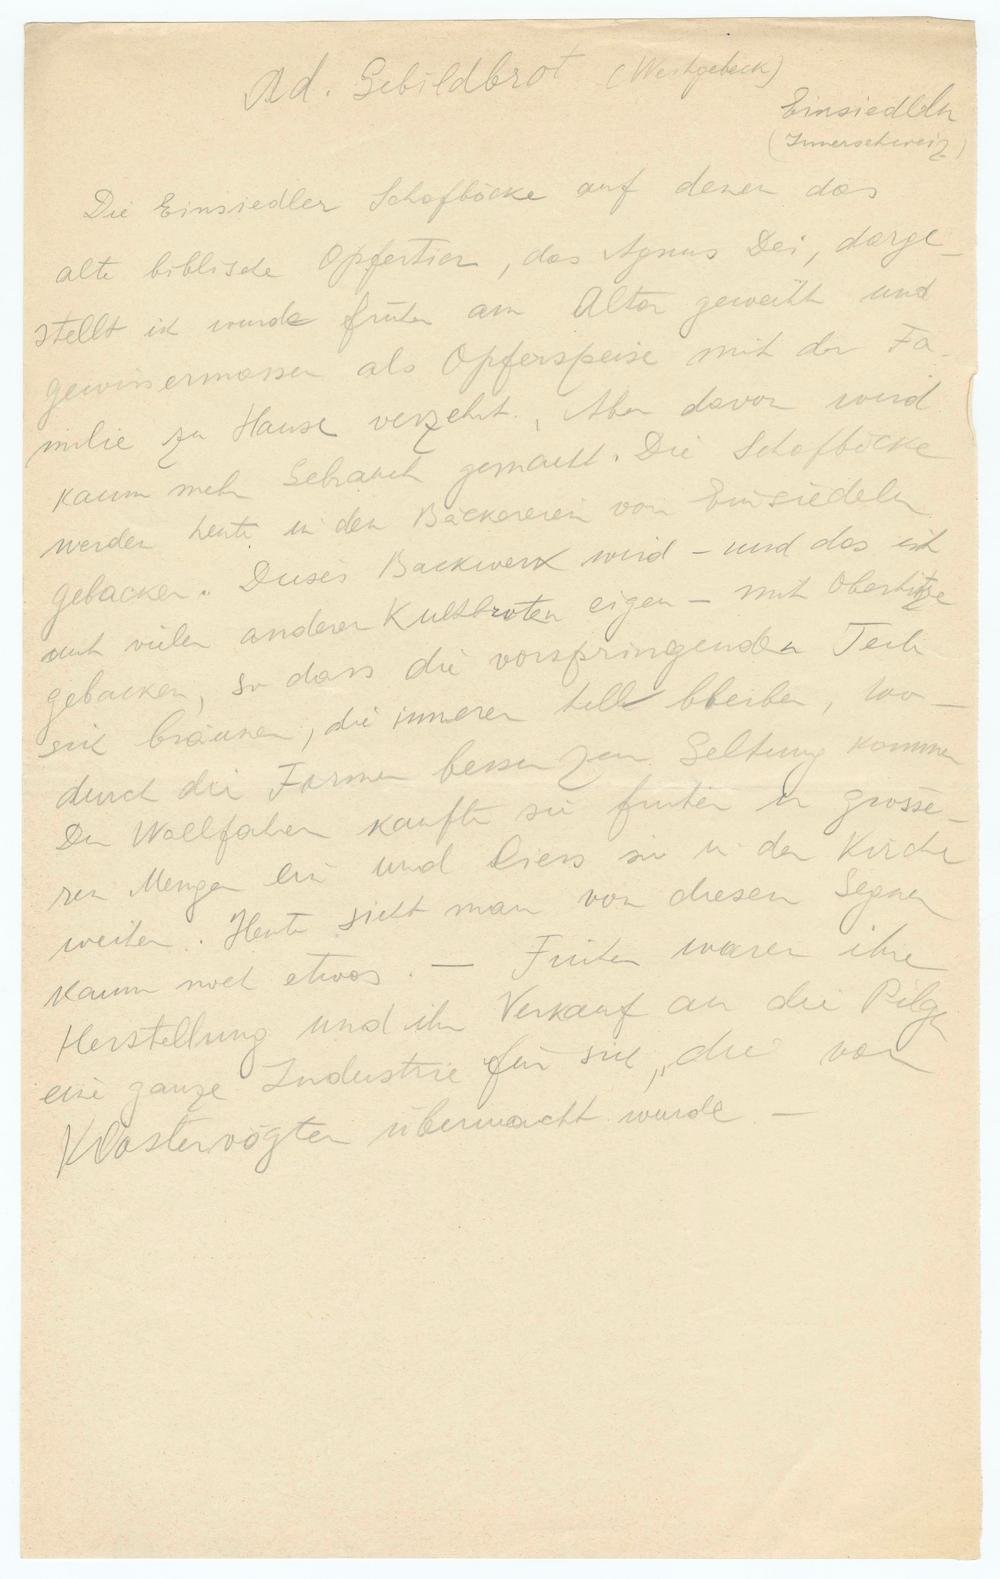 Ad. Gebildbrot (Weihgebäck)
Einsiedeln
(Innerschweiz)
Die Einsiedler Schafböcke auf denen das
alte biblische Opfertier, das Agnus Dei, darge-
stellt ist wurde früher am Altar geweiht und
gewissermassen als Opferspeise mit der Fa-
milie zu Hause verzehrt. Aber davon wird
kaum mehr Gebrauch gemacht. Die Schafböcke
werden heute in den Bäckereien von Einsiedeln
gebacken. Dieses Backwerk wird – und das ist
auch vielen anderen Kultbroten eigen – mit Oberhitze
gebacken, so dass die vorspringenden Teile
sich bräunen, die inneren hell bleiben, wo-
durch die Formen besser zur Geltung kommen
Der Wallfahrer kaufte sie früher in grösse-
ren Mengen ein und liess sie in der Kirche
weihen. Heute sieht man von diesem Segnen
kaum noch etwas. — Früher waren ihre
Herstellung und ihr Verkauf an die Pilger
eine ganze Industrie für sich, die von
Klostervögten überwacht wurde —